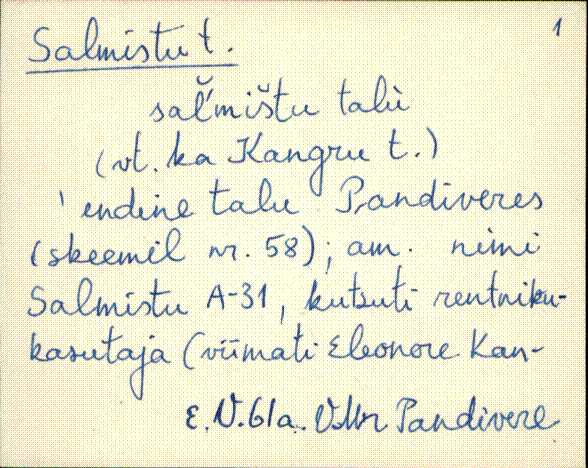 1
Salmistu t.
saĺmištu talù
(vt. ka Kangru t.)
' endine talu Pandiveres
(skeemil nr. 58); am. nimi
Salmistu A-31, kutsuti rentniku-
kasutaja (viimati Eleonore Kan-
E. V. 61a. VMr Pandivere